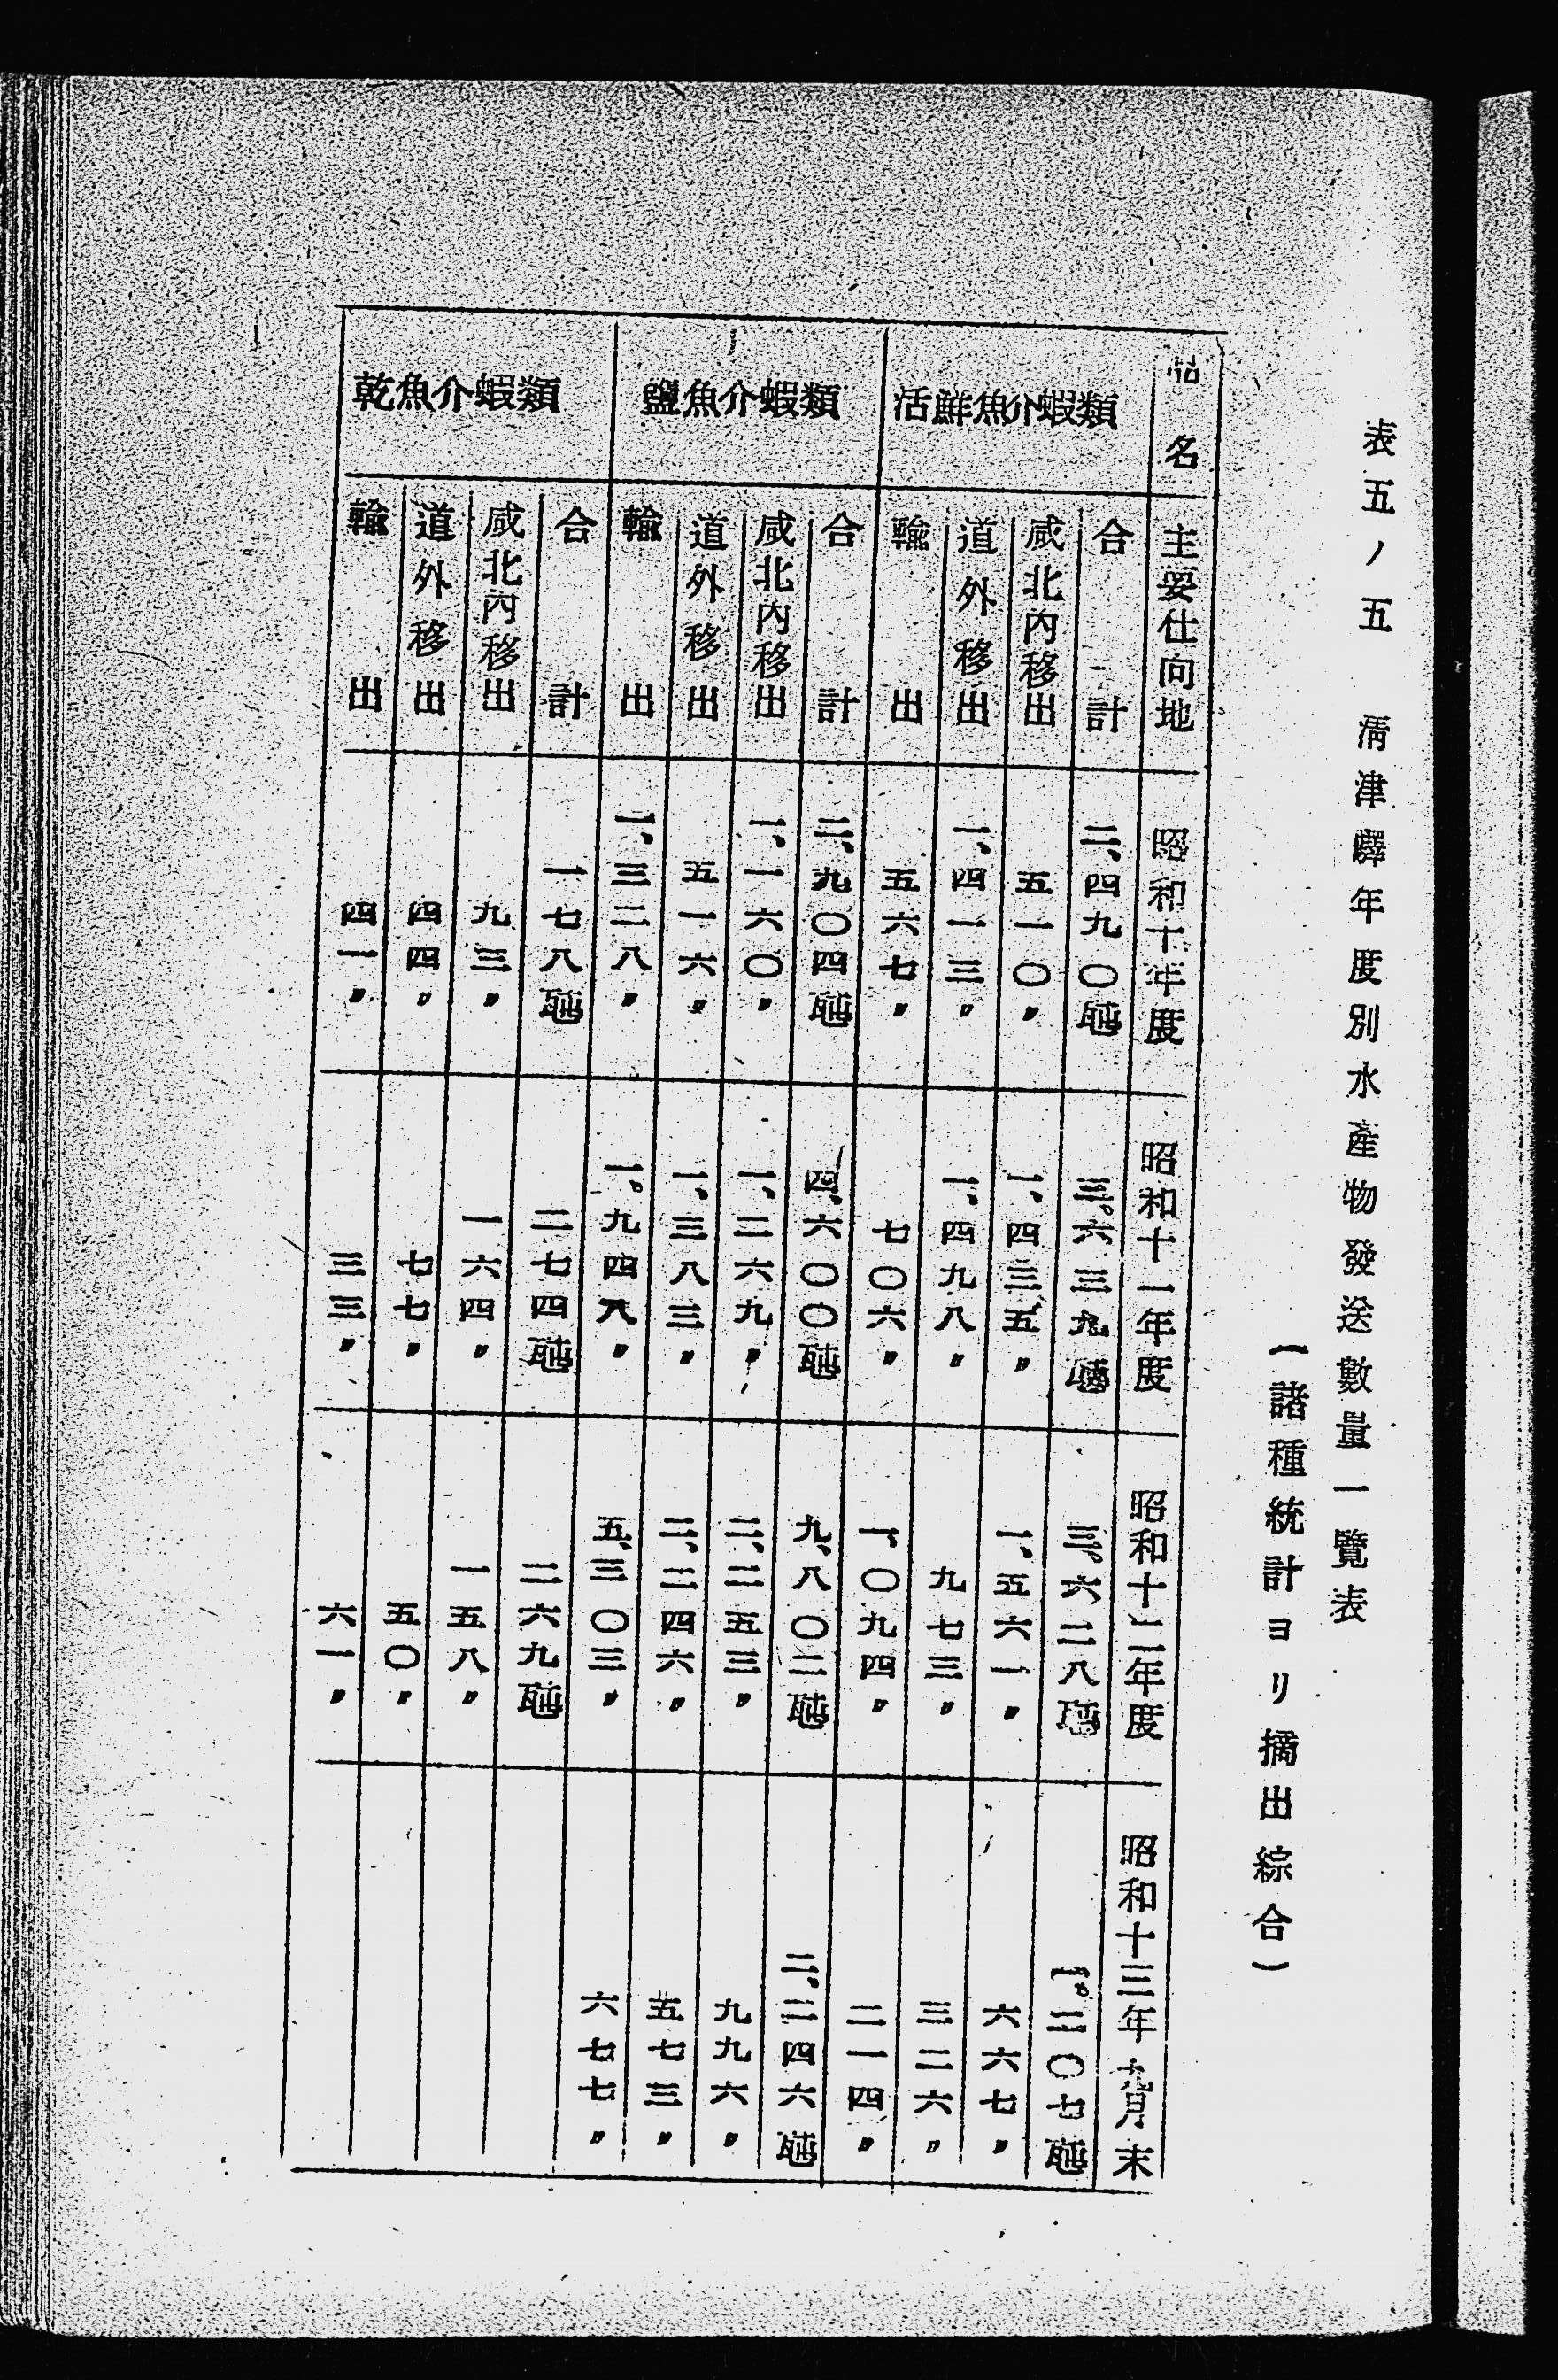 表五ノ五　淸津驛年度別水產物發送數量一覽表
（諸種統計ヨリ摘出綜合）
品名　主要仕向地　昭和十年度　昭和十一年度　昭和十二年度　昭和十三年九月末
活鮮魚介蝦類　合計　二、四九〇瓲　三。六三九瓲　三。六二八瓲　一。二〇七瓲
咸北內移出　五一〇〃　一、四三五〃　一、五六一〃　六六七〃
道外移出　一、四一三〃　一、四九八〃　九七三〃　三二六〃
輸出　五六七〃　七〇六〃　一、〇九四〃　二一四〃
鹽魚介蝦類　合計　二、九〇四瓲　四、六〇〇瓲　九、八〇二瓲　二、二四六瓲
咸北內移出　一、一六〇〃　一、二六九〃　二、二五三〃　九九六〃
道外移出　五一六〃　一、三八三〃　二、二四六〃　五七三〃
輸出　一、三二八〃　一、九四八〃　五、三〇三〃　六七七〃
乾魚介蝦類　合計　一七八瓲　二七四瓲　二六九瓲
咸北內移出　九三〃　一六四〃　一五八〃
道外移出　四四〃　七七〃　五〇〃
輸出　四一〃　三三〃　六一〃